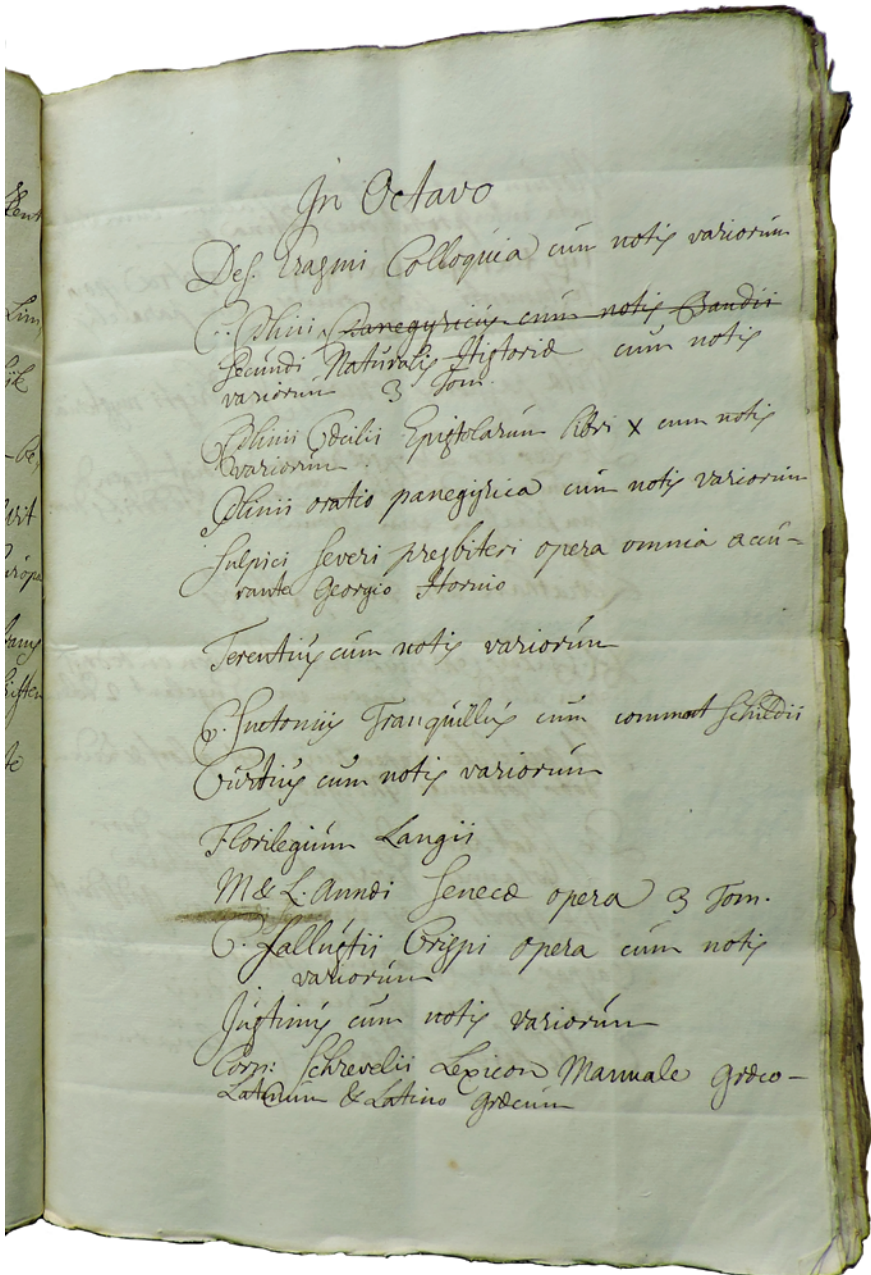 In Octavo
Des. Erasmi Colloquia cum notis variorum
C. Plinii Panegyricus cum notis Baudii
Secundi Naturalis Historiæ cum notis
variorum 3 Tom.
Plinii Cæcilii Epistolarum libri X cum notis
variorum.
Plinii oratio panegyrica cum notis variorum
Sulpici Severi presbiteri opera omnia accu-
rante Georgio Hornio
Terentius cum notis variorum
C. Suetonius Tranquillus cum comment Schildii
Curtius cum notis variorum
Florilegium Langii
M & L. Annæi Senecæ opera 3 Tom.
C. Sallustii Crispi opera cum notis
variorum
Justinus cum notis variorum
Corn: Schrevelii Lexicon Manuale Græco-
Latinum & Latino Græcum